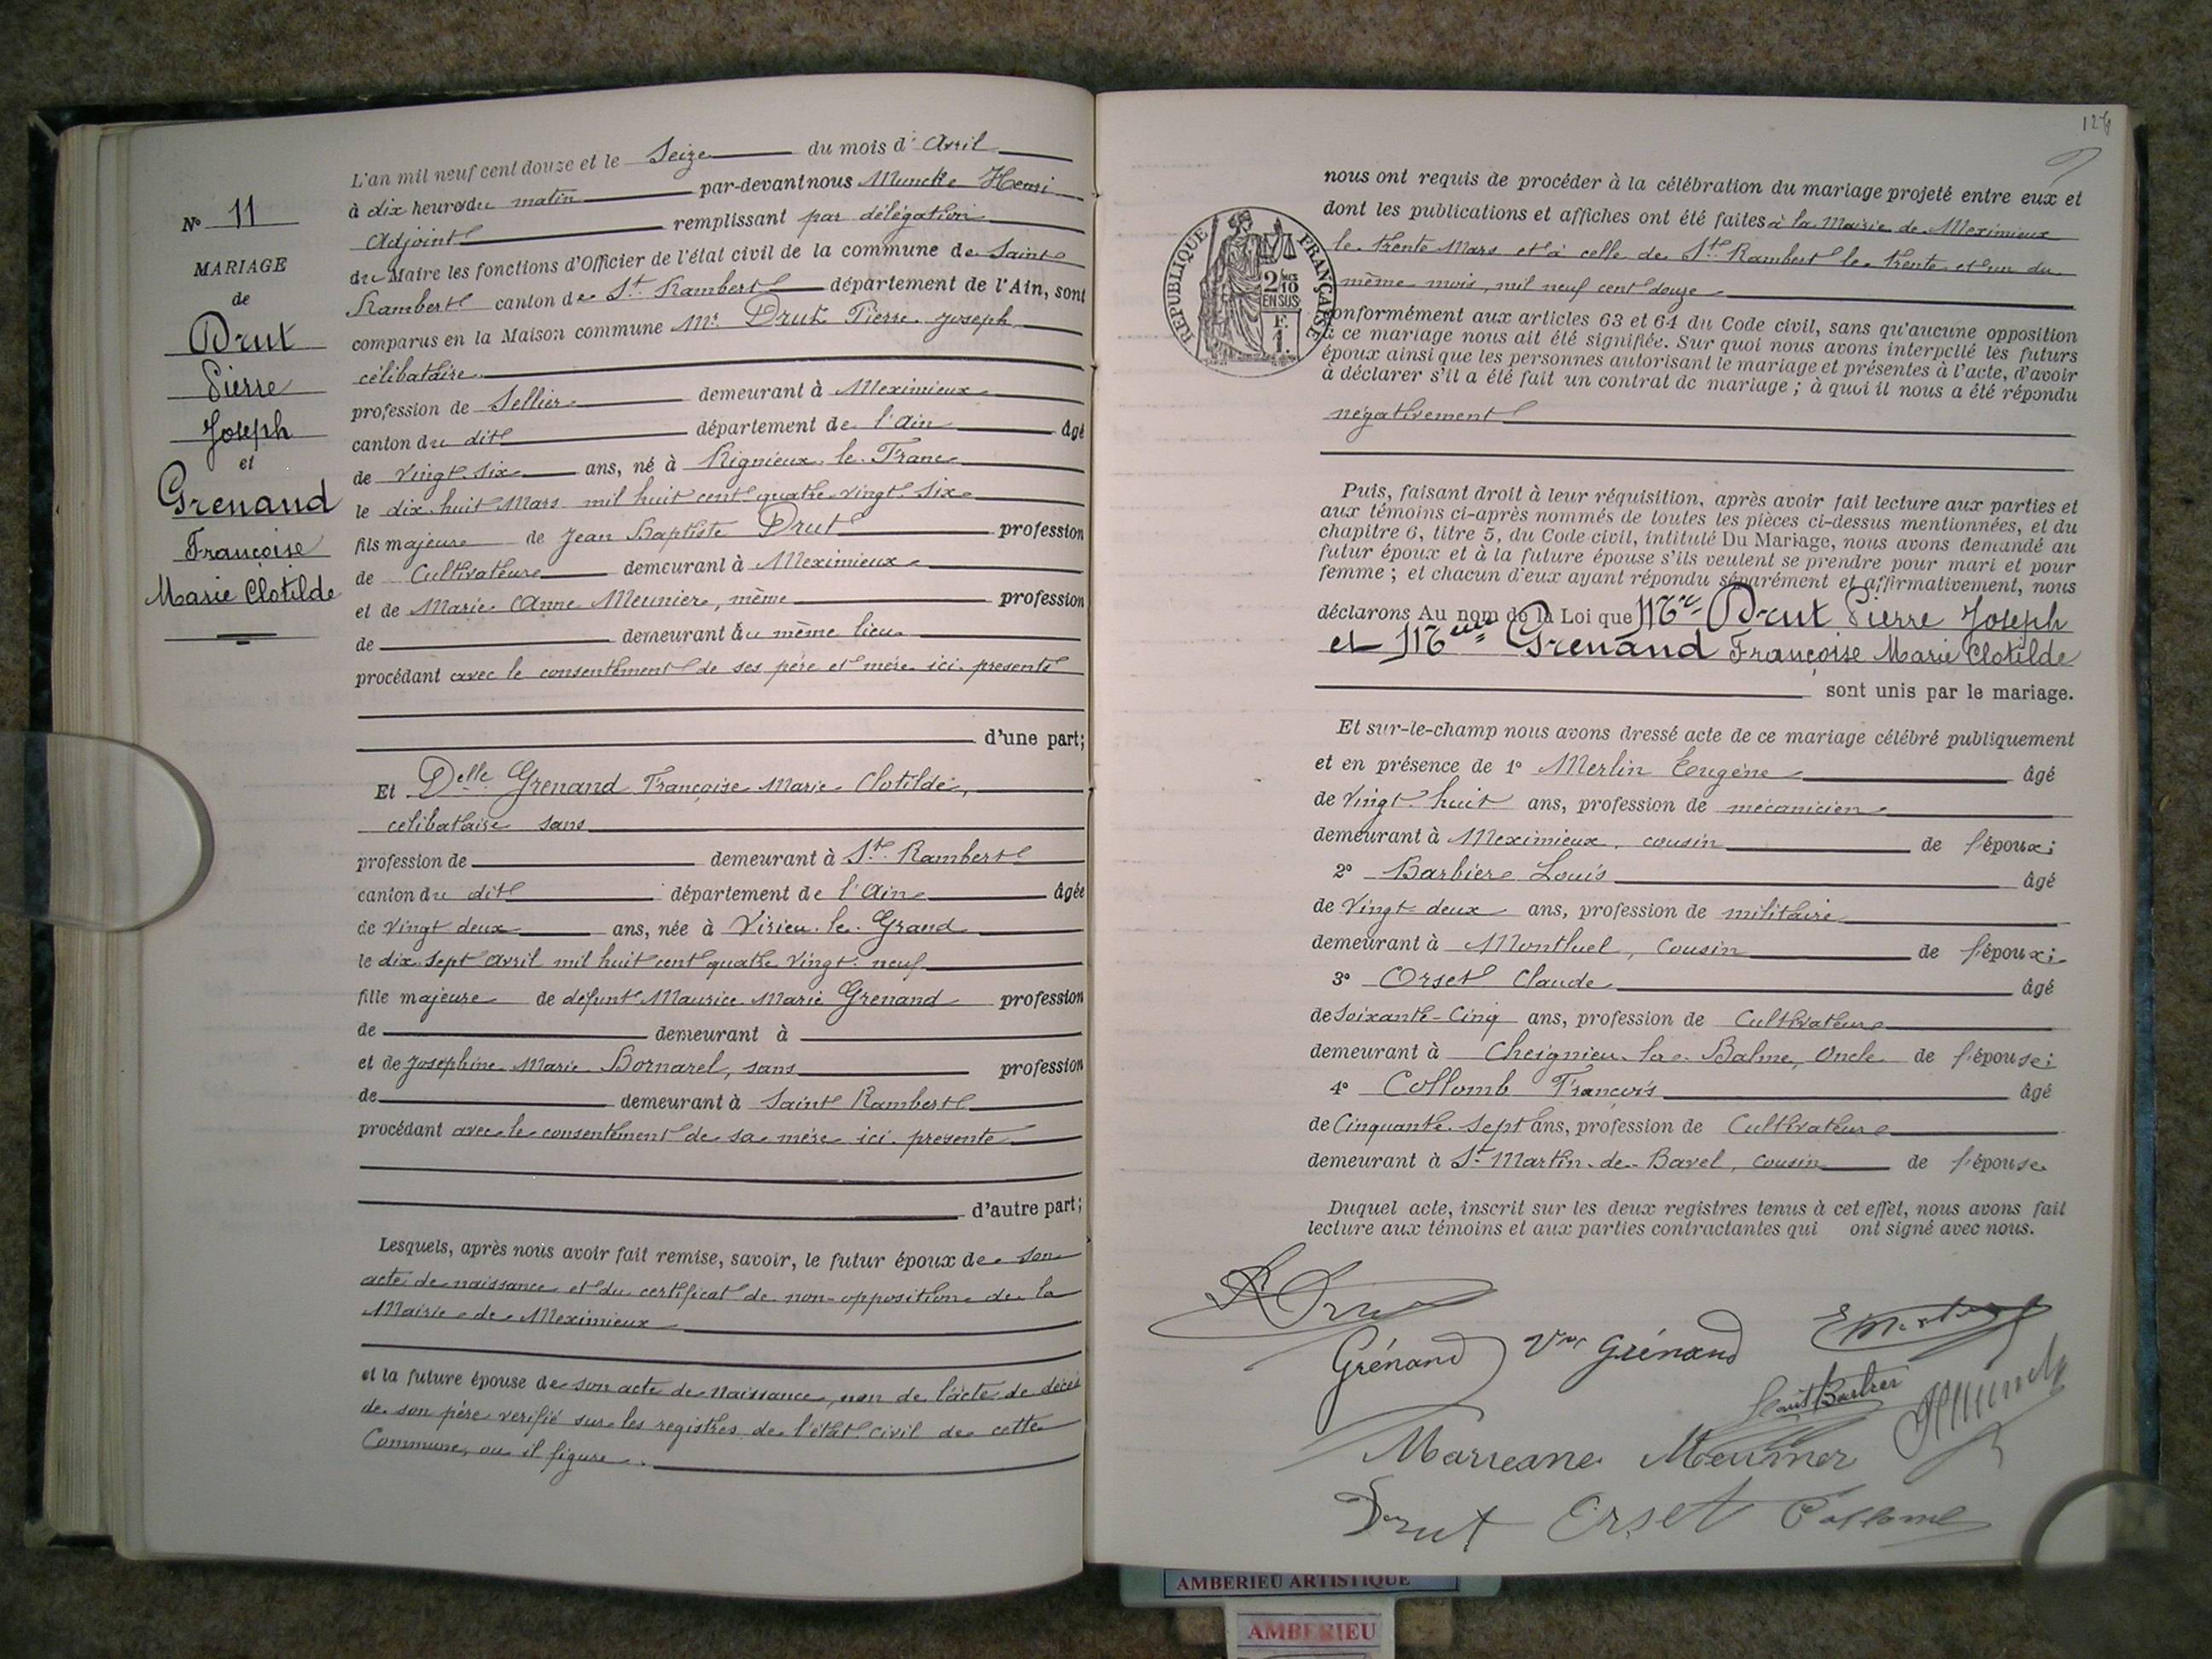 N° 11
MARIAGE
de
Drut
Pierre
Joseph
et
Grenand
Françoise
Marie Clotilde
L'an mil neuf cent douze et le Seize du mois d' Avril
à dix heures du matin par-devant nous Henri
Adjoint remplissant par délégation
du Maire les fonctions d'Officier de l'état civil de la commune de Saint
Rambert canton de St. Rambert département de l'Ain, sont
comparus en la Maison commune Mr. Drut Pierre Joseph
célibataire
profession de Sellier demeurant à Meximieux
canton du dit département de l'Ain âgé
de vingt six ans, né à Rignieux le Franc
le dix huit Mars mil huit cent quatre vingt six
fils majeur de Jean Baptiste Drut profession
de Cultivateur demeurant à Meximieux
et de Marie Anne Meunier, même profession
de demeurant au même lieu
procédant avec le consentement de ses père et mère ici présents
d'une part;
Et Delle Grenand Françoise Marie Clotilde,
célibataire sans
profession de demeurant à St. Rambert
canton du dit département de l'Ain âgée
de Vingt deux ans, née à Virieu le Grand
le dix sept avril mil huit cent quatre vingt neuf
fille majeure de défunt Maurice Marie Grenand profession
de demeurant à
et de Joséphine Marie Bornarel, sans profession
de demeurant à Saint Rambert
procédant avec le consentement de sa mère ici présente
d'autre part;
Lesquels, après nous avoir fait remise, savoir, le futur époux de son
acte de naissance et du certificat de non-opposition de la
Mairie de Meximieux
et la future épouse de son acte de naissance, non de l'acte de décès
de son père verifié sur les registres de l'état civil de cette
Commune, ou il figure.
nous ont requis de procéder à la célébration du mariage projeté entre eux et
dont les publications et affiches ont été faites à la Mairie de Meximieux
le trente Mars et à celle de St. Rambert le trente et un du
même mois, mil neuf cent douze
RÉPUBLIQUE FRANÇAISE
2/10 EN SUS
F. 1.
conformément aux articles 63 et 64 du Code civil, sans qu'aucune opposition
à ce mariage nous ait été signifiée. Sur quoi nous avons interpellé les futurs
époux ainsi que les personnes autorisant le mariage et présentes à l'acte, d'avoir
à déclarer s'il a été fait un contrat de mariage ; à quoi il nous a été répondu
négativement
Puis, faisant droit à leur réquisition, après avoir fait lecture aux parties et
aux témoins ci-après nommés de toutes les pièces ci-dessus mentionnées, et du
chapitre 6, titre 5, du Code civil, intitulé Du Mariage, nous avons demandé au
futur époux et à la future épouse s'ils veulent se prendre pour mari et pour
femme ; et chacun d'eux ayant répondu séparément et affirmativement, nous
déclarons Au nom de la Loi que Mr. Drut Pierre Joseph
et Melle Grenand Françoise Marie Clotilde
sont unis par le mariage.
Et sur-le-champ nous avons dressé acte de ce mariage célébré publiquement
et en présence de 1° Merlin Eugène âgé
de Vingt huit ans, profession de mécanicien
demeurant à Meximieux, cousin de l'époux;
2° Barbier Louis âgé
de Vingt deux ans, profession de militaire
demeurant à Montluel, cousin de l'époux;
3° Orset Claude âgé
de Soixante-Cinq ans, profession de Cultivateur
demeurant à Cheignieu la Balme, Oncle de l'épouse;
4° Collomb François âgé
de Cinquante-sept ans, profession de Cultivateur
demeurant à St. Martin-de-Bavel, cousin de l'épouse
Duquel acte, inscrit sur les deux registres tenus à cet effet, nous avons fait
lecture aux témoins et aux parties contractantes qui ont signé avec nous.
Grénand Vve Grénand
Louis Barbier
Marieane Meunier
Drut Orset Collomb
AMBERIEU ARTISTIQUE
AMBERIEU